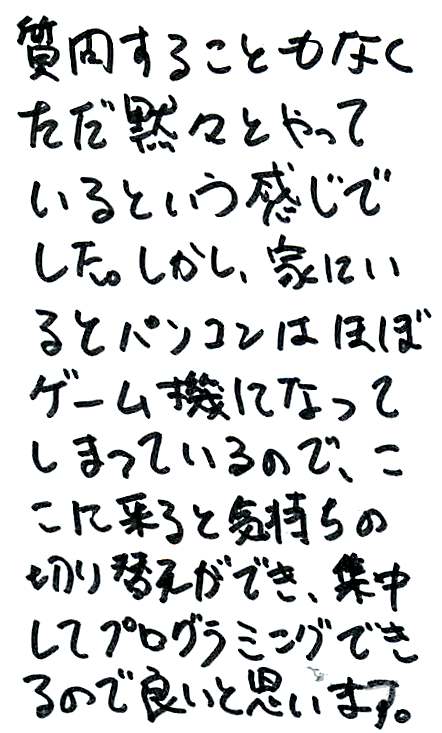 質問することもなく
ただ黙々とやって
いるという感じで
した。しかし、家にい
るとパソコンはほぼ
ゲーム機になって
しまっているので、こ
こに来ると気持ちの
切り替えができ、集中
してプログラミングでき
るので良いと思います。